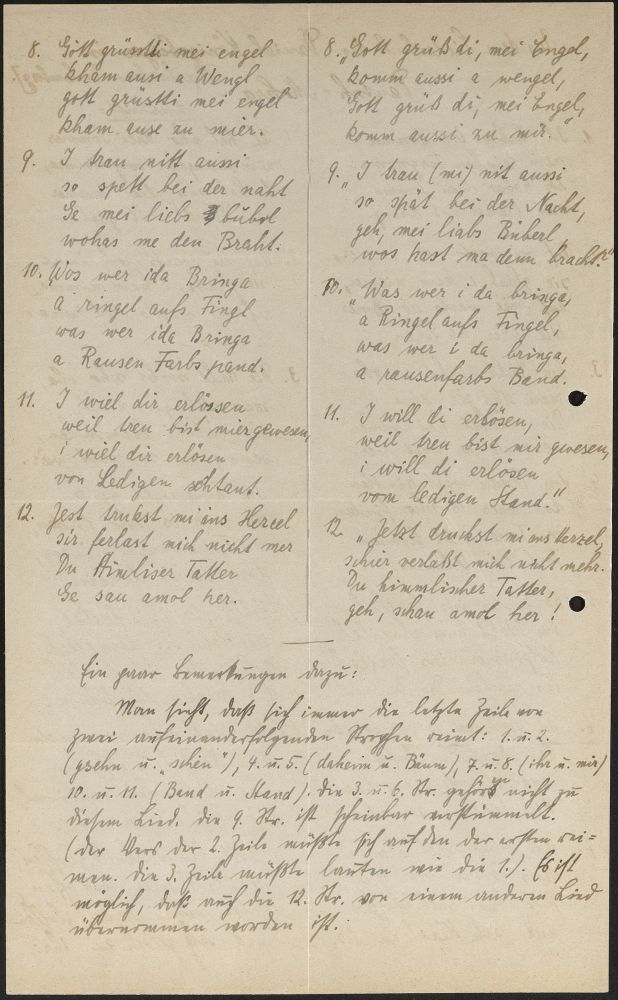 8. Gött grüssti mei engel
kham ausi a Wengl
gott grüstti mei engel
kham ause zu mier.
9. I trau nitt aussi
so spett bei der naht
Ge mei liebs bübol
wohas me den Braht.
10. Wos wer ida Bringa
a ringel aufs Fingl
was wer ida Bringa
a Rausen Farbs pand.
11. I wiel dir erlössen
weil treu bist mier gewesen,
i wiel dir erlösen
von Ledigen schtant.
12. Jest trukst mi ins Hercel
sir ferlast mich nicht mer
Du Himliser Tatter
Ge sau amol her.
8. „Gott grüß di, mei Engel,
komm aussi a wengel,
Gott grüß di, mei Engel,
komm aussi zu mir."
9. „I trau (mi) nit aussi
so spät bei der Nacht,
geh, mei liabs Büberl
wos hast ma denn bracht?"
10. „Was wer i da bringa,
a Ringel aufs Fingel,
was wer i da bringa,
a rausenfarbs Band.
11. I will di erlösen,
weil treu bist mir gwesen,
i will di erlösen
vom ledigen Stand."
12 „Jetzt druckst mi ins Herzel,
schier verlaßt mich nicht mehr.
Du himmlischer Tatter,
geh, schau amol her!
Ein paar Bemerkungen dazu:
Man sieht, daß sich immer die letzte Zeile von
zwei aufeinanderfolgenden Strophen reimt: 1. u. 2.
(gsehn u. „schön"), 4. u. 5. (daheim u. Bäum), 7. u. 8. (ihr u. mir)
10. u. 11. (Band u. Stand). Die 3. u. 6. Str. gehört nicht zu
diesem Lied. Die 9. Str. ist scheinbar verstümmelt.
(Der Vers der 2. Zeile müßte sich auf den der ersten rei=
men. Die 3. Zeile müßte lauten wie die 1.). Es ist
möglich, daß auch die 12. Str. von einem anderen Lied
übernommen worden ist.